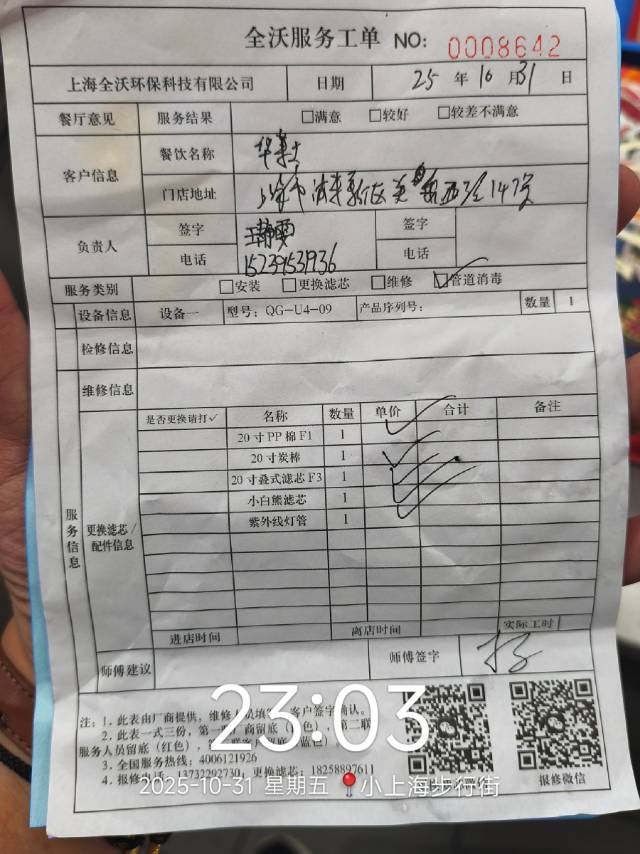 全沃服务工单 NO: 0008642
上海全沃环保科技有限公司 日期 25 年 10 月 31 日
餐厅意见 服务结果 □满意 □较好 □较差不满意
客户信息 餐饮名称 华莱士
门店地址 上海市浦东新区 147号
负责人 签字 签字
电话 15239531936 电话
服务类别 □安装 □更换滤芯 □维修 ☑管道消毒
设备信息 设备一 型号: QG-U4-09 产品序列号: 数量 1
检修信息
维修信息
服务信息 更换滤芯/配件信息
是否更换请打✓ 名称 数量 单价 合计 备注
20寸PP棉F1 1 ✓
20寸炭棒 1 ✓
20寸叠式滤芯F3 1 ✓
小白熊滤芯 1 ✓
紫外线灯管 1 ✓
进店时间 离店时间 实际工时
师傅建议 师傅签字
注: 1. 此表由厂商提供, 维修 客户签字确认。
2. 此表一式三份, 第一 厂商留底 第二联
服务人员留底 (红色),
3. 全国服务热线: 4006121926
4. 报修电话: 13732292730 更换滤芯: 18258897611
报修微信
23:03
2025-10-31 星期五 小上海步行街